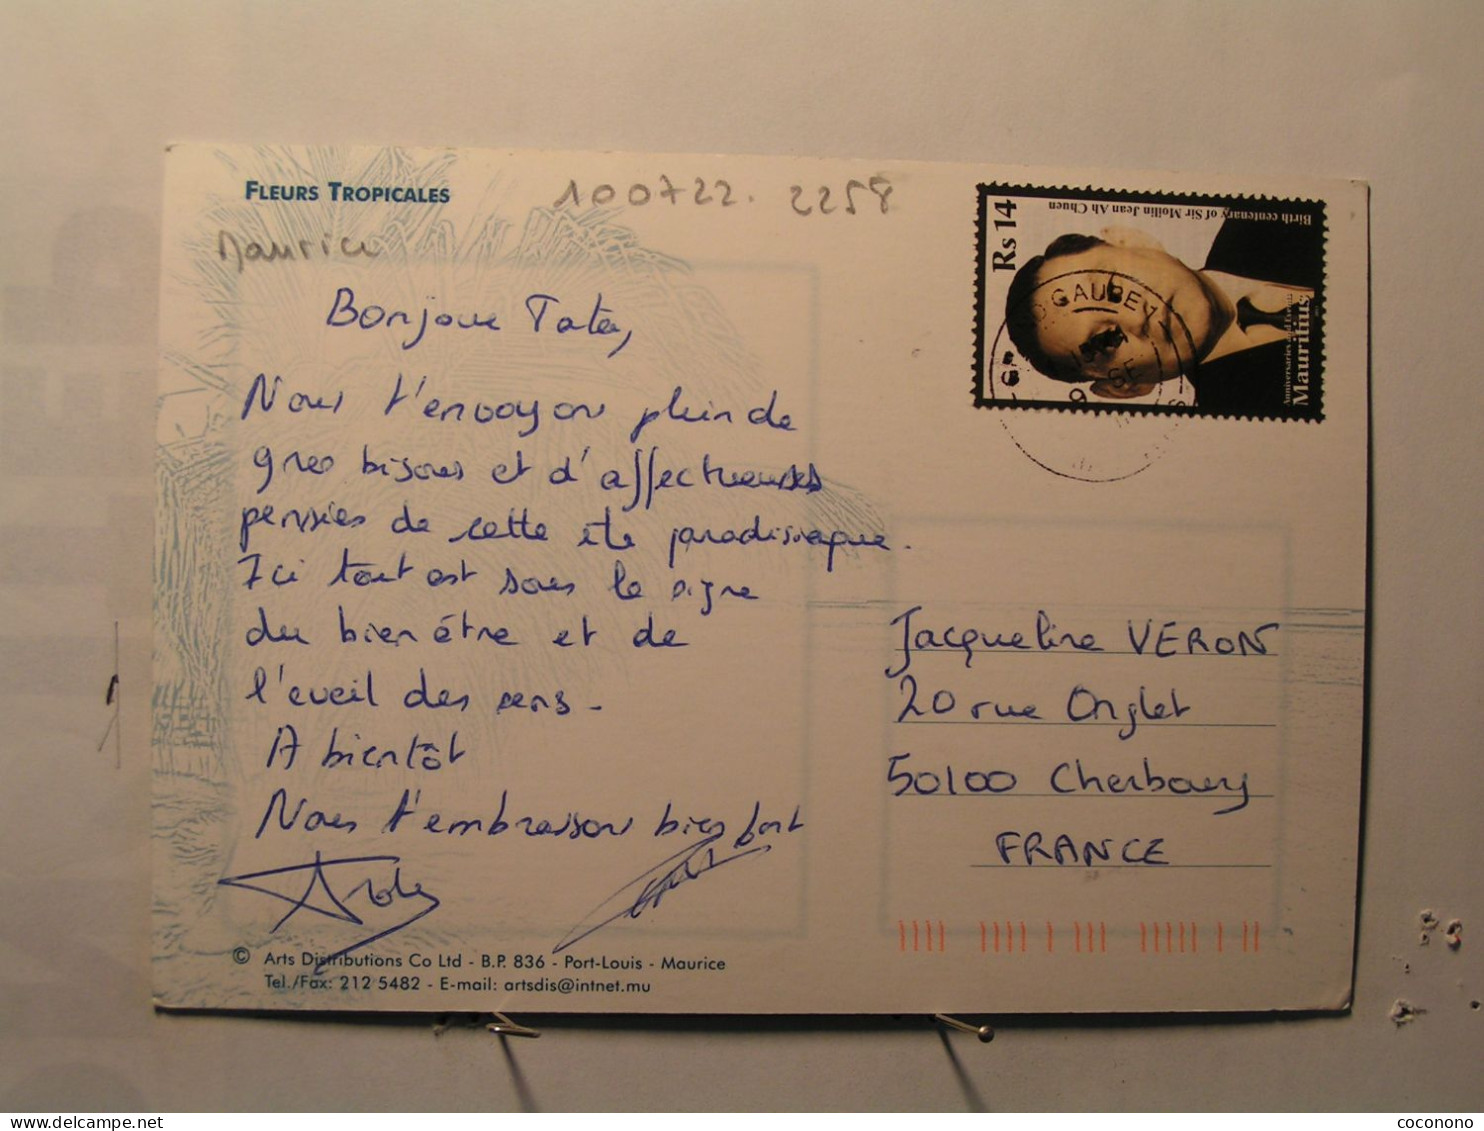 FLEURS TROPICALES
100722. 2258
Maurice
Bonjour Tata,
Nous t'envoyon plein de
gros bisous et d'affectueuses
pensées de cette île paradisiaque.
Ici tout est sous le signe
du bien être et de
l'eveil des sens.
A bientôt
Nous t'embrassons bien fort
© Arts Distributions Co Ltd - B.P. 836 - Port-Louis - Maurice
Tel./Fax: 212 5482 - E-mail: artsdis@intnet.mu
Rs 14
Birth centenary of Sir Moilin Jean Ah Chuen
Mauritius
Jacqueline VERON
20 rue Onglet
50100 Cherbourg
FRANCE
coconono